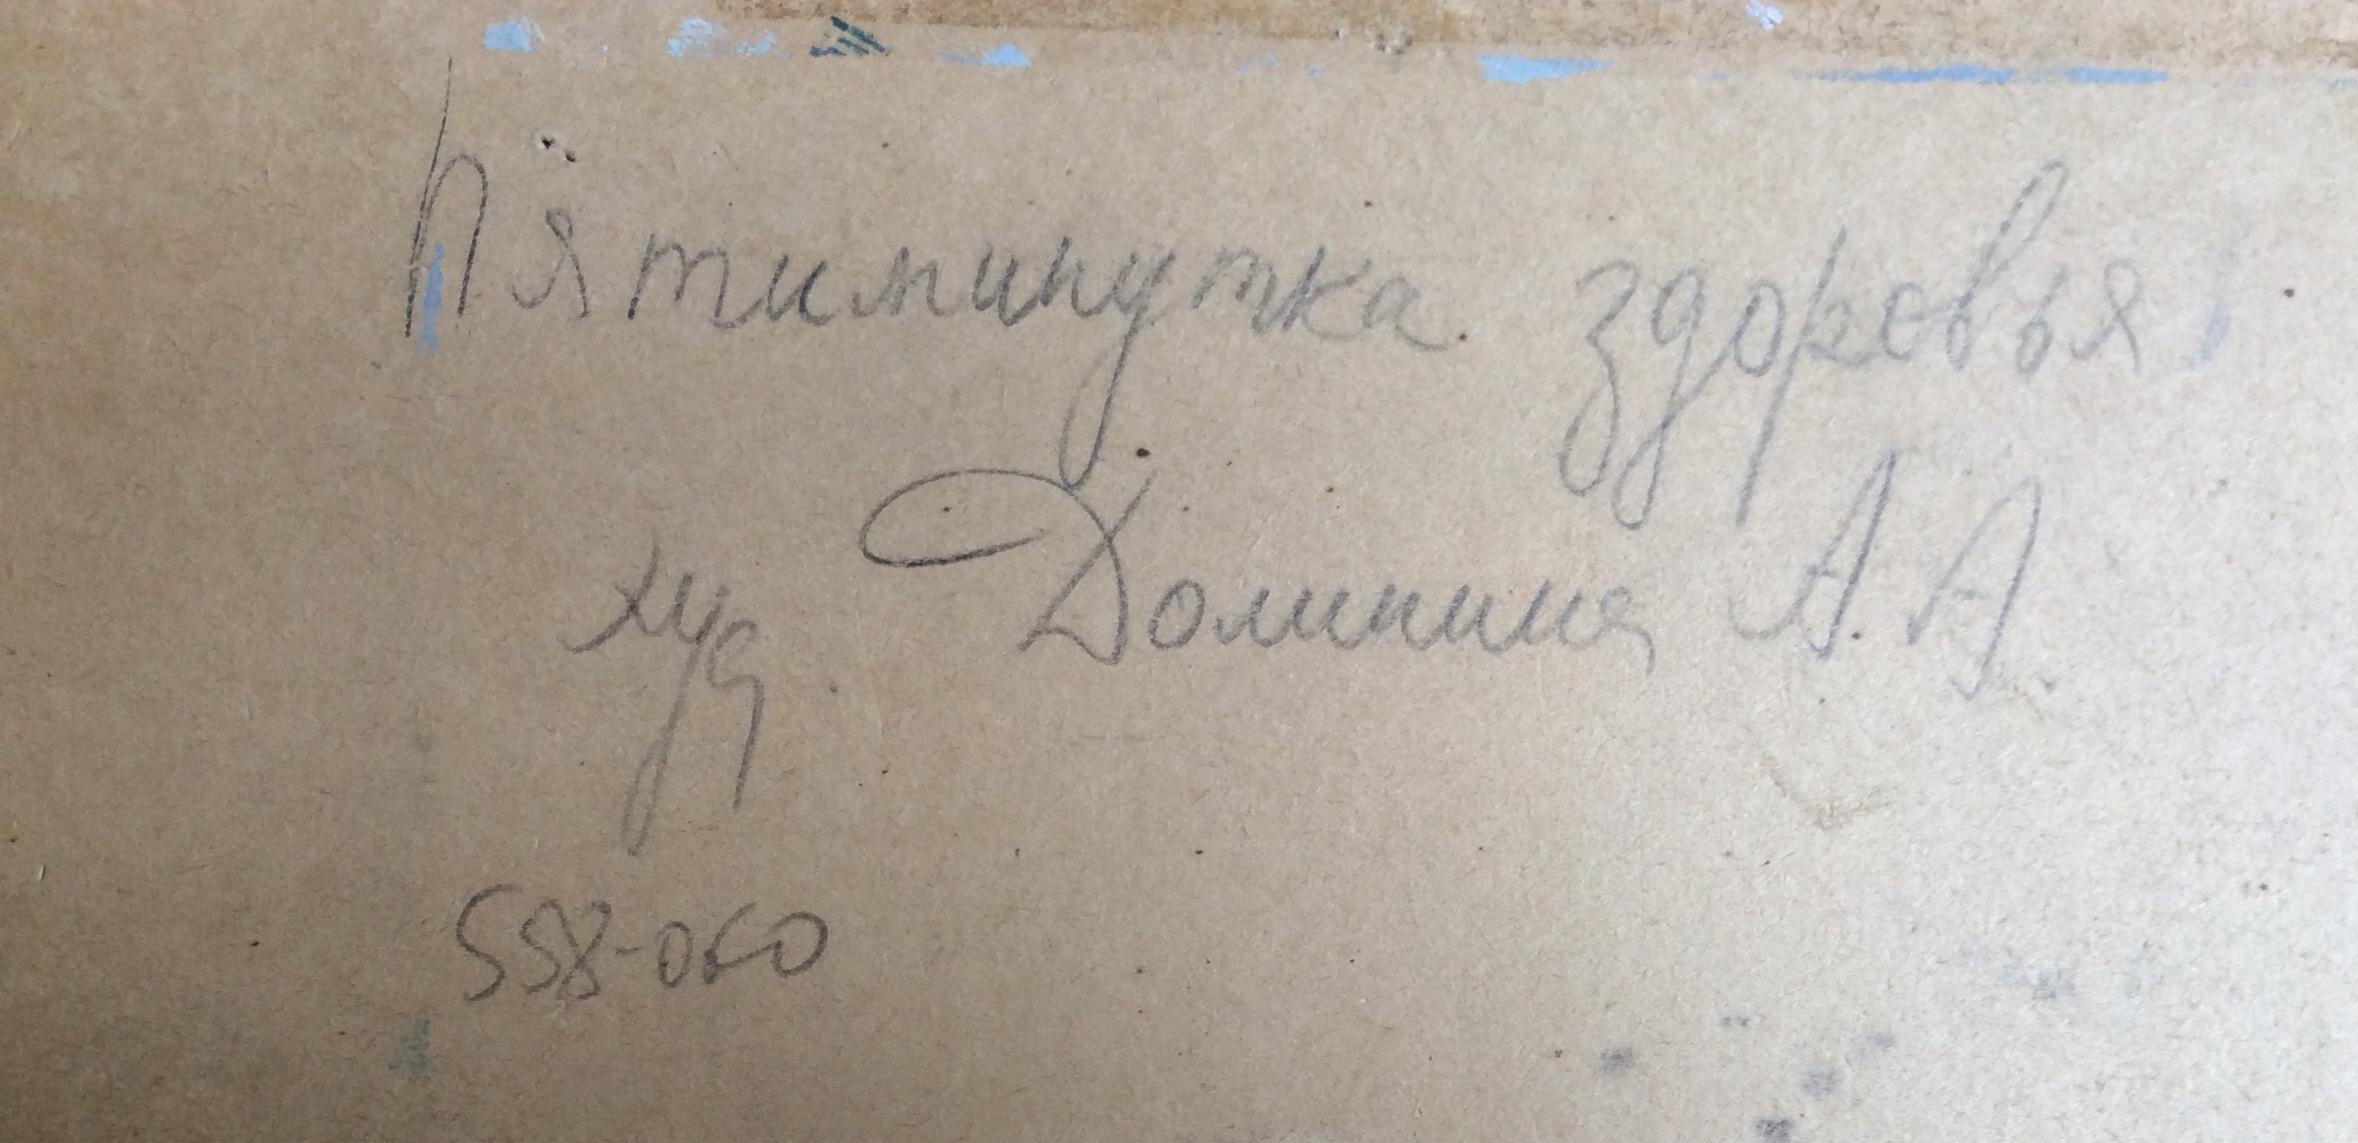 Пятиминутка здоровья
худ. Долинина А. А.
558-060